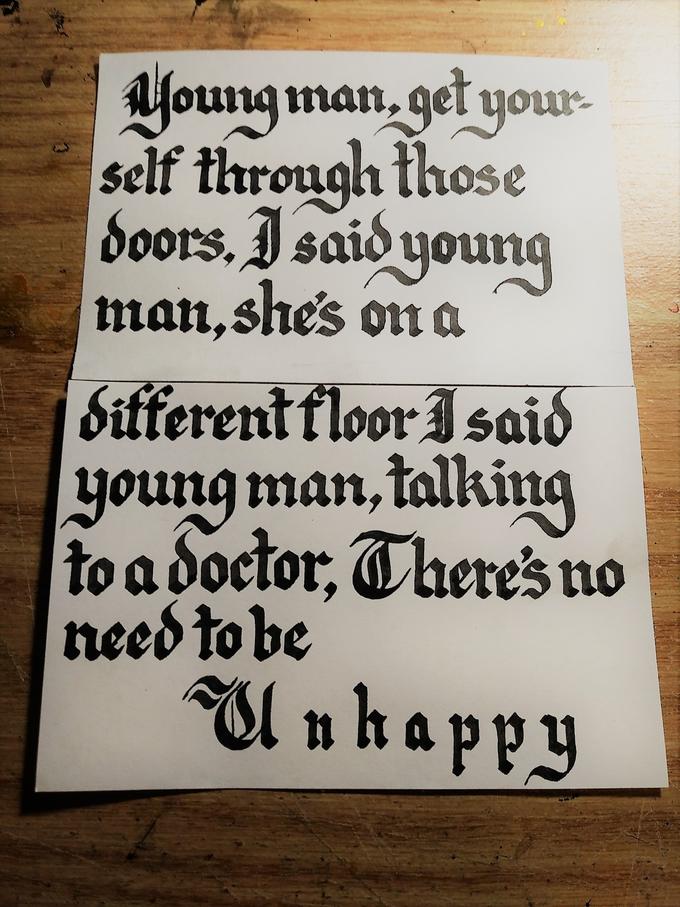 Young man, get your-
self through those
doors, I said young
man, she's on a
different floor I said
young man, talking
to a doctor, There's no
need to be
Unhappy